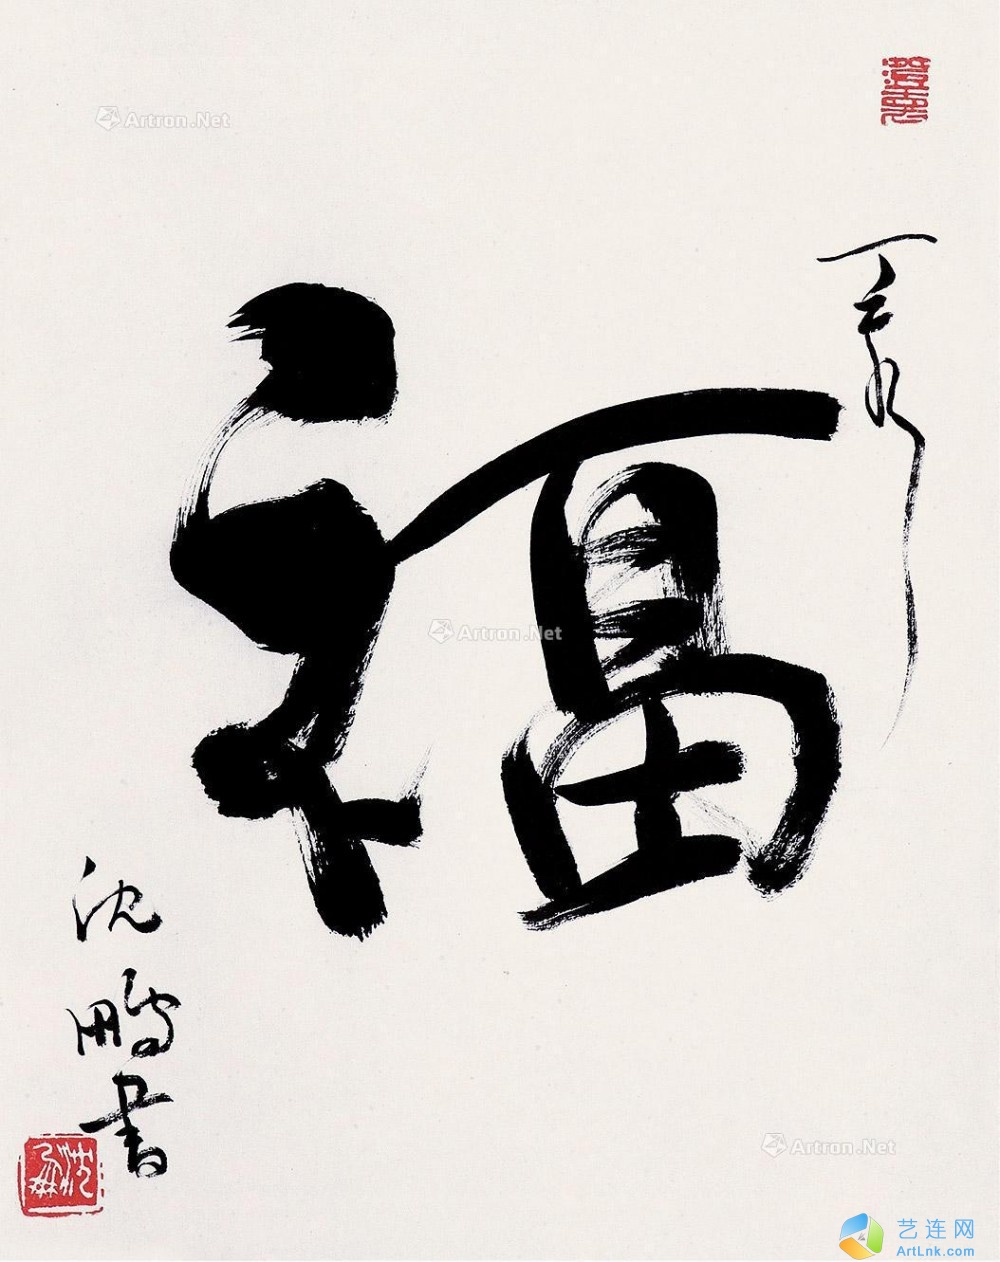 Artron.Net
福
Artron.Net
沈鵬書
Artron.Net
艺连网
ArtLnk.com